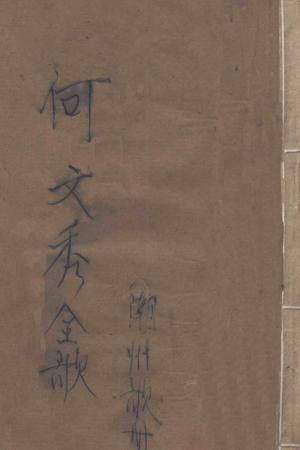 何文秀全歌
潮州歌册